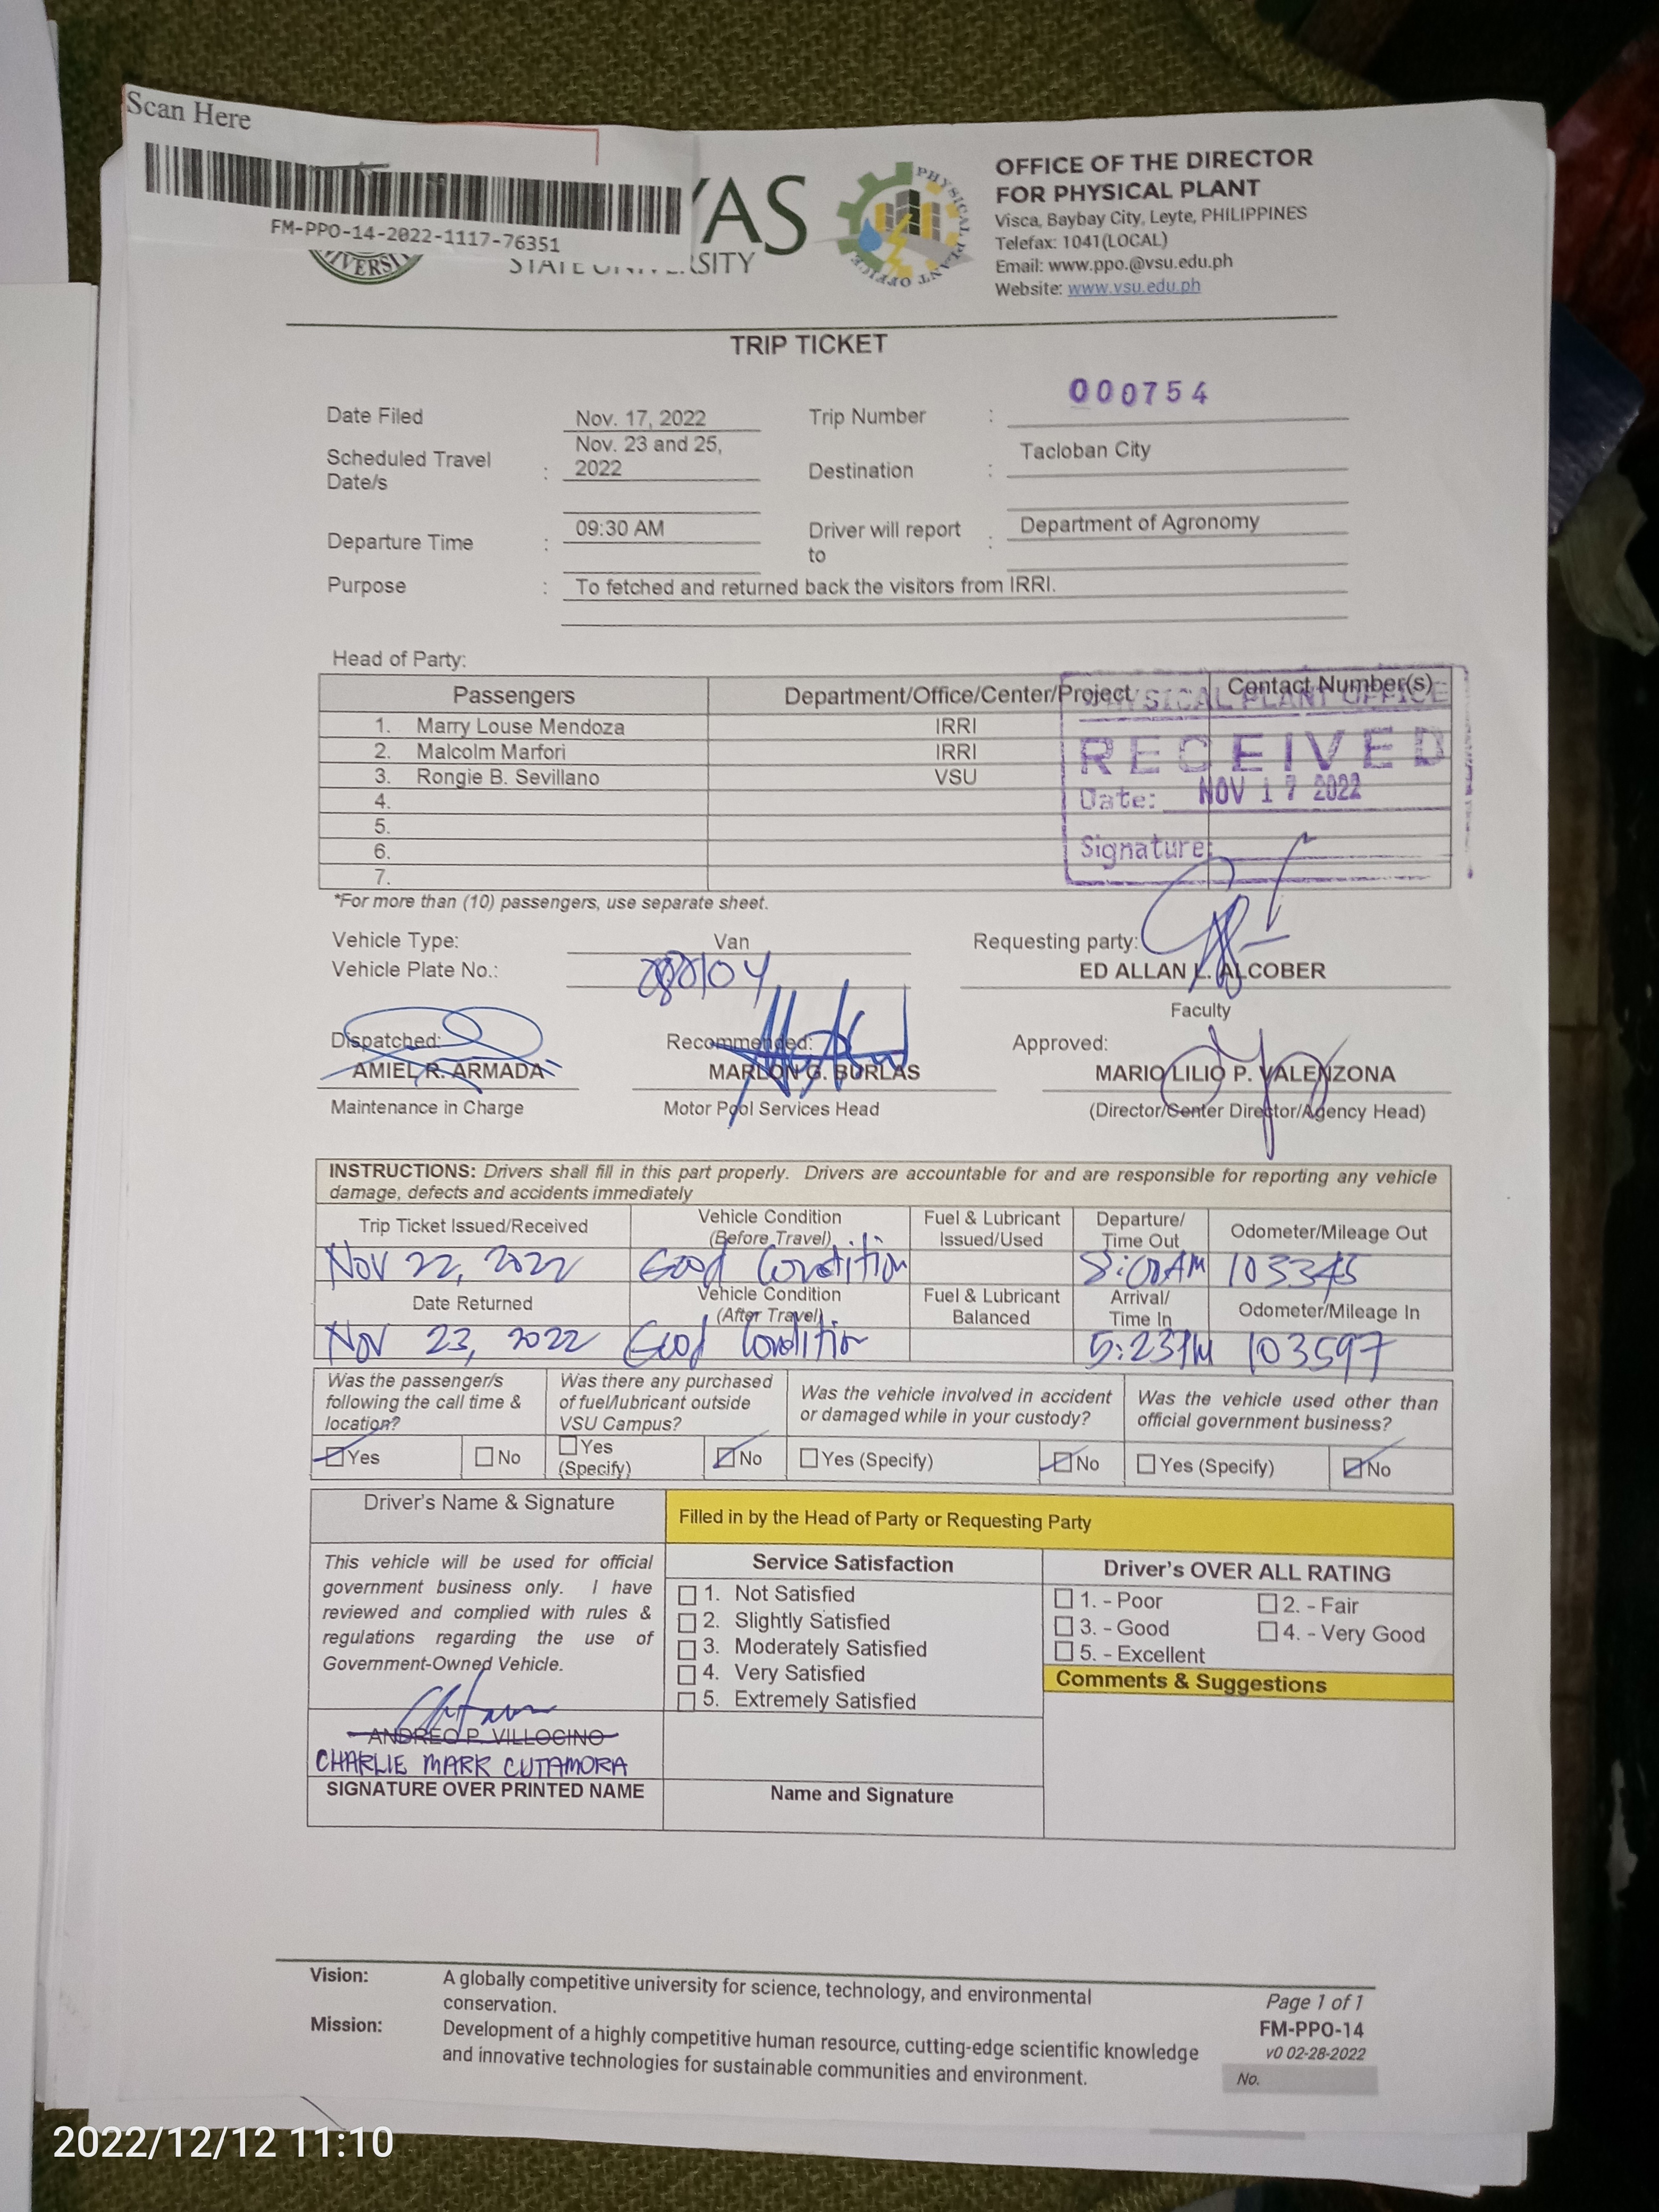 Scan Here
FM-PPO-14-2022-1117-76351
YAS
STATE UNIVERSITY
VERSI
PHYSICAL PLANT OFFICE
OFFICE OF THE DIRECTOR
FOR PHYSICAL PLANT
Visca, Baybay City, Leyte, PHILIPPINES
Telefax: 1041(LOCAL)
Email: www.ppo.@vsu.edu.ph
Website: www.vsu.edu.ph
TRIP TICKET
Date Filed Nov. 17, 2022 Trip Number : 000754
Scheduled Travel Date/s : Nov. 23 and 25, 2022 Destination : Tacloban City
Departure Time : 09:30 AM Driver will report to : Department of Agronomy
Purpose : To fetched and returned back the visitors from IRRI.
Head of Party:
Passengers Department/Office/Center/Project Contact Number(s)
1. Marry Louse Mendoza IRRI
2. Malcolm Marfori IRRI
3. Rongie B. Sevillano VSU
4.
5.
6.
7.
PHYSICAL PLANT OFFICE
RECEIVED
Date: NOV 17 2022
Signature:
*For more than (10) passengers, use separate sheet.
Vehicle Type: Van Requesting party:
Vehicle Plate No.: ED ALLAN L. ALCOBER
Faculty
Dispatched: Recommended: Approved:
AMIEL R. ARMADA MARLON G. BURLAS MARIO LILIO P. VALENZONA
Maintenance in Charge Motor Pool Services Head (Director/Center Director/Agency Head)
INSTRUCTIONS: Drivers shall fill in this part properly. Drivers are accountable for and are responsible for reporting any vehicle
damage, defects and accidents immediately
Trip Ticket Issued/Received Vehicle Condition (Before Travel) Fuel & Lubricant Issued/Used Departure/ Time Out Odometer/Mileage Out
Nov 22, 2022 Good Condition 8:00AM 103345
Date Returned Vehicle Condition (After Travel) Fuel & Lubricant Balanced Arrival/ Time In Odometer/Mileage In
Nov 23, 2022 Good Condition 5:23PM 103597
Was the passenger/s following the call time & location? Was there any purchased of fuel/lubricant outside VSU Campus? Was the vehicle involved in accident or damaged while in your custody? Was the vehicle used other than official government business?
Yes No Yes (Specify) No Yes (Specify) No Yes (Specify) No
Driver's Name & Signature Filled in by the Head of Party or Requesting Party
This vehicle will be used for official
government business only. I have
reviewed and complied with rules &
regulations regarding the use of
Government-Owned Vehicle.
ANDREO P. VILLOCINO
CHARLIE MARK CUTAMORA
SIGNATURE OVER PRINTED NAME
Service Satisfaction
1. Not Satisfied
2. Slightly Satisfied
3. Moderately Satisfied
4. Very Satisfied
5. Extremely Satisfied
Name and Signature
Driver's OVER ALL RATING
1. - Poor 2. - Fair
3. - Good 4. - Very Good
5. - Excellent
Comments & Suggestions
Vision: A globally competitive university for science, technology, and environmental
conservation.
Mission: Development of a highly competitive human resource, cutting-edge scientific knowledge
and innovative technologies for sustainable communities and environment.
Page 1 of 1
FM-PPO-14
v0 02-28-2022
No.
2022/12/12 11:10